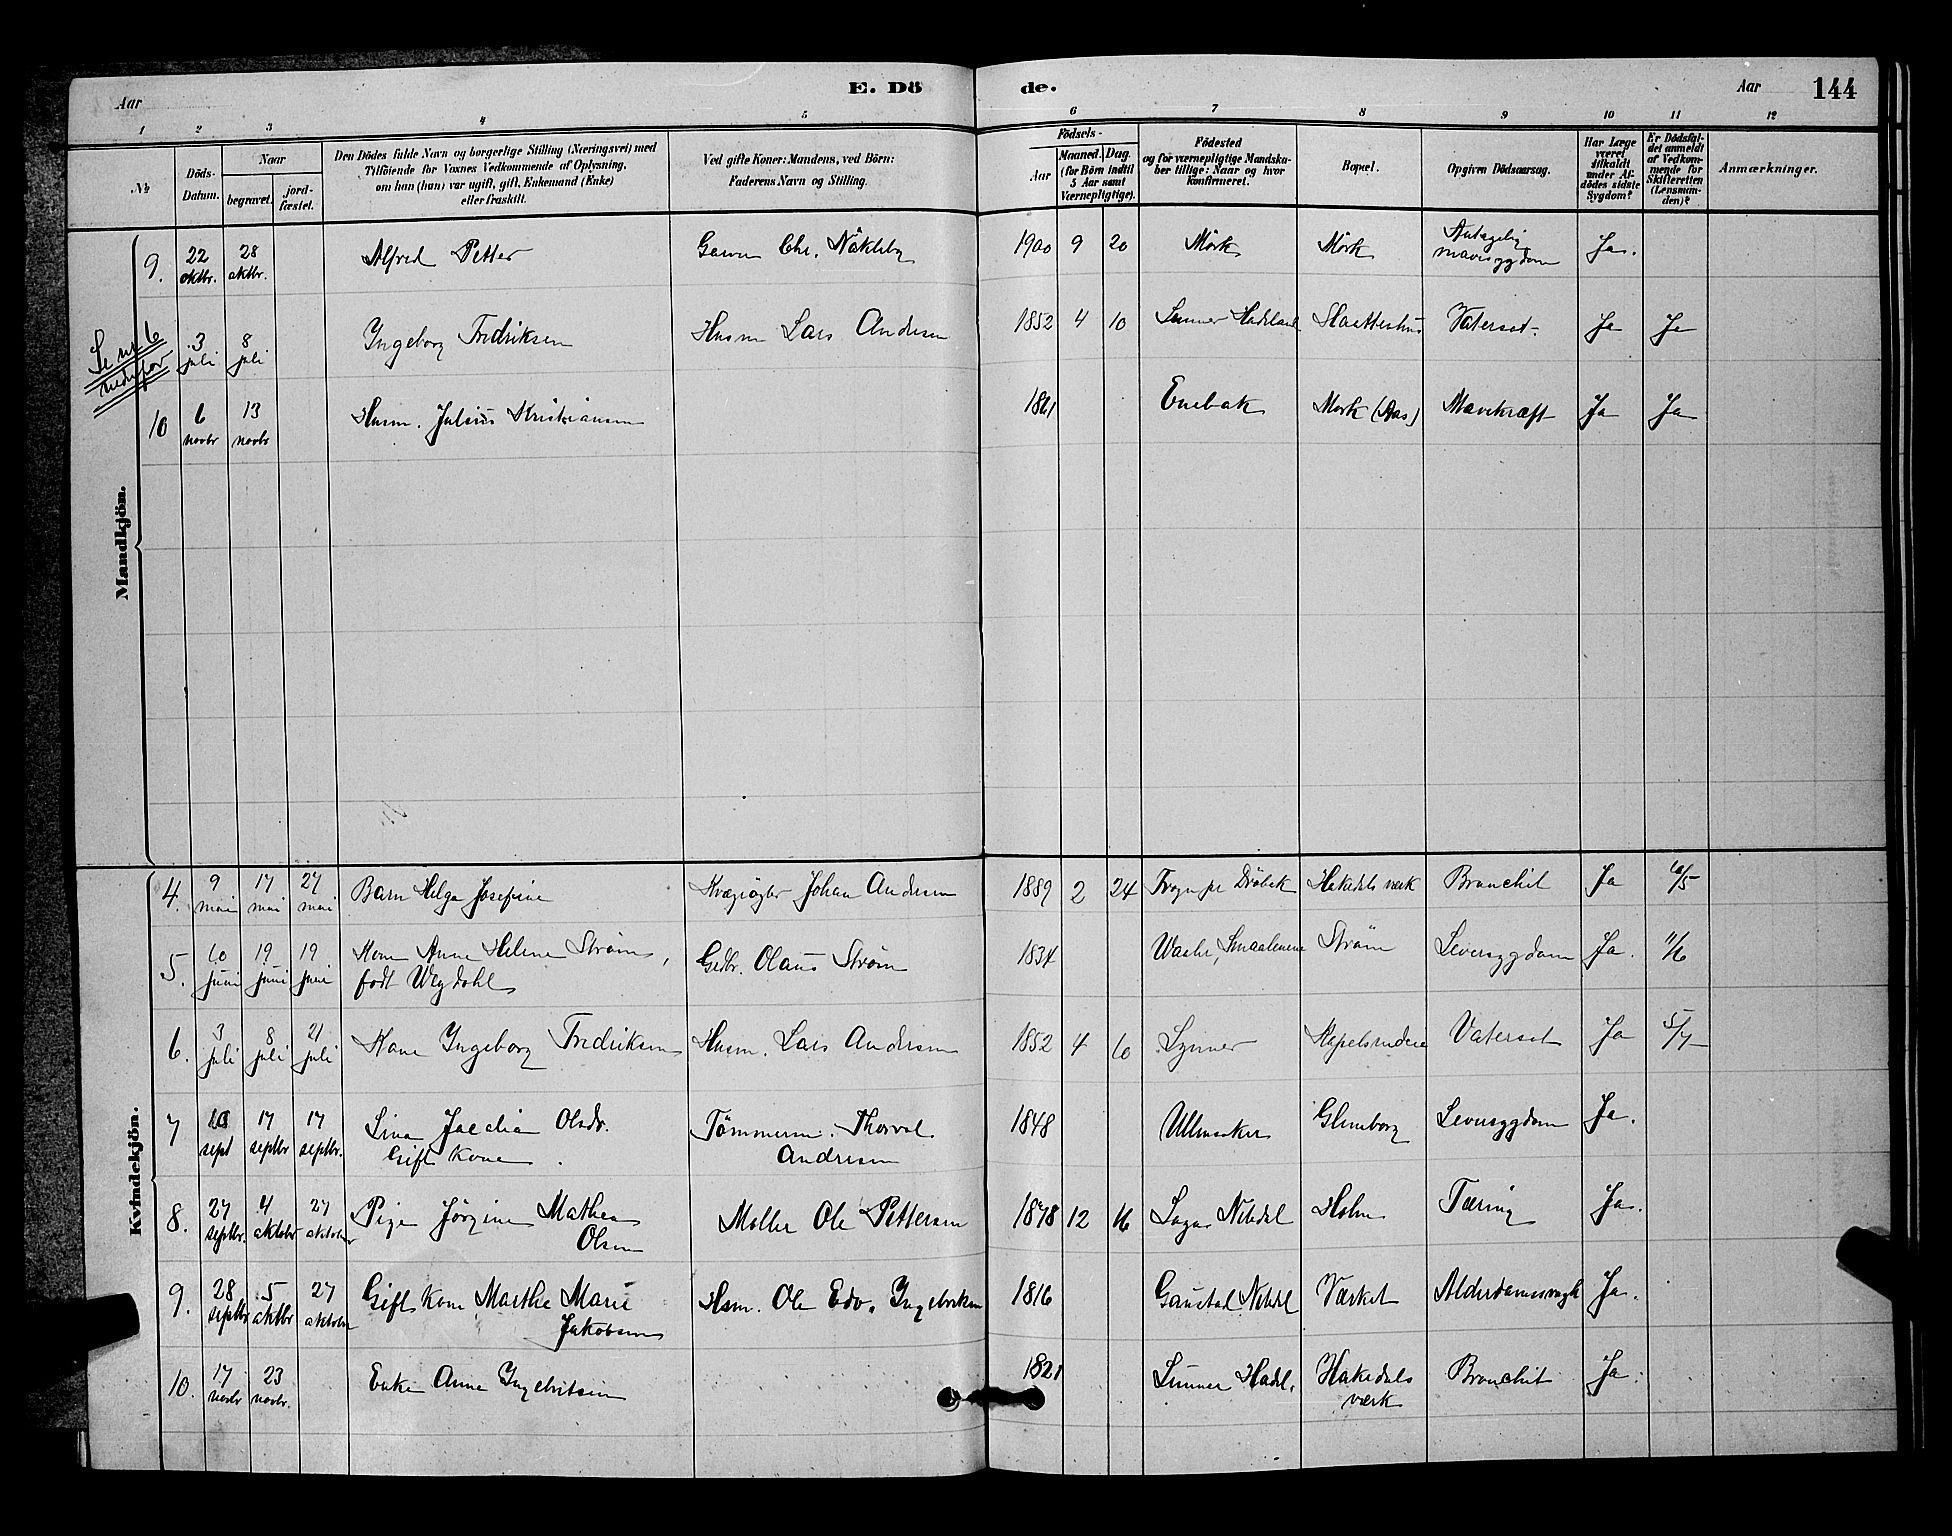 Aar
E. Dö
de.
Aar
144
1 2 3 4 5 6 7 8 9 10 11 12
№
Döds-
Datum.
Naar
begravet.
jord-
fæstet.
Den Dödes fulde Navn og borgerlige Stilling (Næringsvei) med
Tilföiende for Voxnes Vedkommende af Oplysning,
om han (hun) var ugift, gift, Enkemand (Enke)
eller fraskilt.
Ved gifte Koner: Mandens, ved Börn:
Faderens Navn og Stilling.
Födsels-
Aar
Maaned. Dag.
(for Börn indtil
5 Aar samt
Værnepligtige).
Födested
og for værnepligtige Mandska-
ber tillige: Naar og hvor
Konfirmeret.
Bopæl.
Opgiven Dödsaarsag.
Har Læge
været
tilkaldt
under Af-
dödes sidste
Sygdom?
Er Dödsfal-
det anmeldt
af Vedkom-
mende for
Skifteretten
(Lensman-
den)?
Anmærkninger.
Mandkjön.
9. 22 oktbr. 28 oktbr. Alfred Petter Chr. Nökleby 1900 9 20 Mörk Mörk Antagelig mavesygdom Ja.
Se nr 6
nedenfor
3 juli 8 juli Ingeborg Fredriksen Husm Lars Andersen 1852 4 10 Lunner Hadeland Vatersot. Ja Ja
10 6 novbr 13 novbr Husm. Julius Kristiansen 1861 Enebak Mork (Aas) Mavekræft Ja Ja
Kvindekjön.
4. 9 mai 17 mai 27 mai Barn Helga Josefine Johan Andersen 1889 2 24 Drøbak Hakedals verk Bronchit Ja 10/5
5. 10 juni 19 juni 19 juni Kone Anne Helene Strøm, Gdbr. Olaus Strøm 1834 Smaalenene Strøm Leversygdom Ja. 11/6
født
6. 3 juli 8 juli 21 juli Kone Ingeborg Fredriksen Husm. Lars Andersen 1852 4 10 Lynner Vatersot Ja 5/7
7 10 sept 17 septbr 17 septbr. Lina Olsdr. Tømmerm. Thorval 1848 Ullensaker Glenborg Leversygdom Ja.
Gift Kone. Andresen
8. 27 septbr. 4 oktobr 27 oktober Pige Jørgine Mathea Møller Ole Pettersen 1878 12 16 Nitedal Holm Tæring Ja.
Olsen
9. 28 septbr 5 oktbr 27 oktober Gift Kone Marthe Marie Hsm. Ole Edv. Ingebretsen 1816 Gaustad Nitedl Værket Alderdomssvagh Ja.
Jakobsen
10. 17 novbr 23 novbr. Enke Anne Ingebritsen 1821 Lunner Hadl. Hakedals Bronchit Ja.
værk